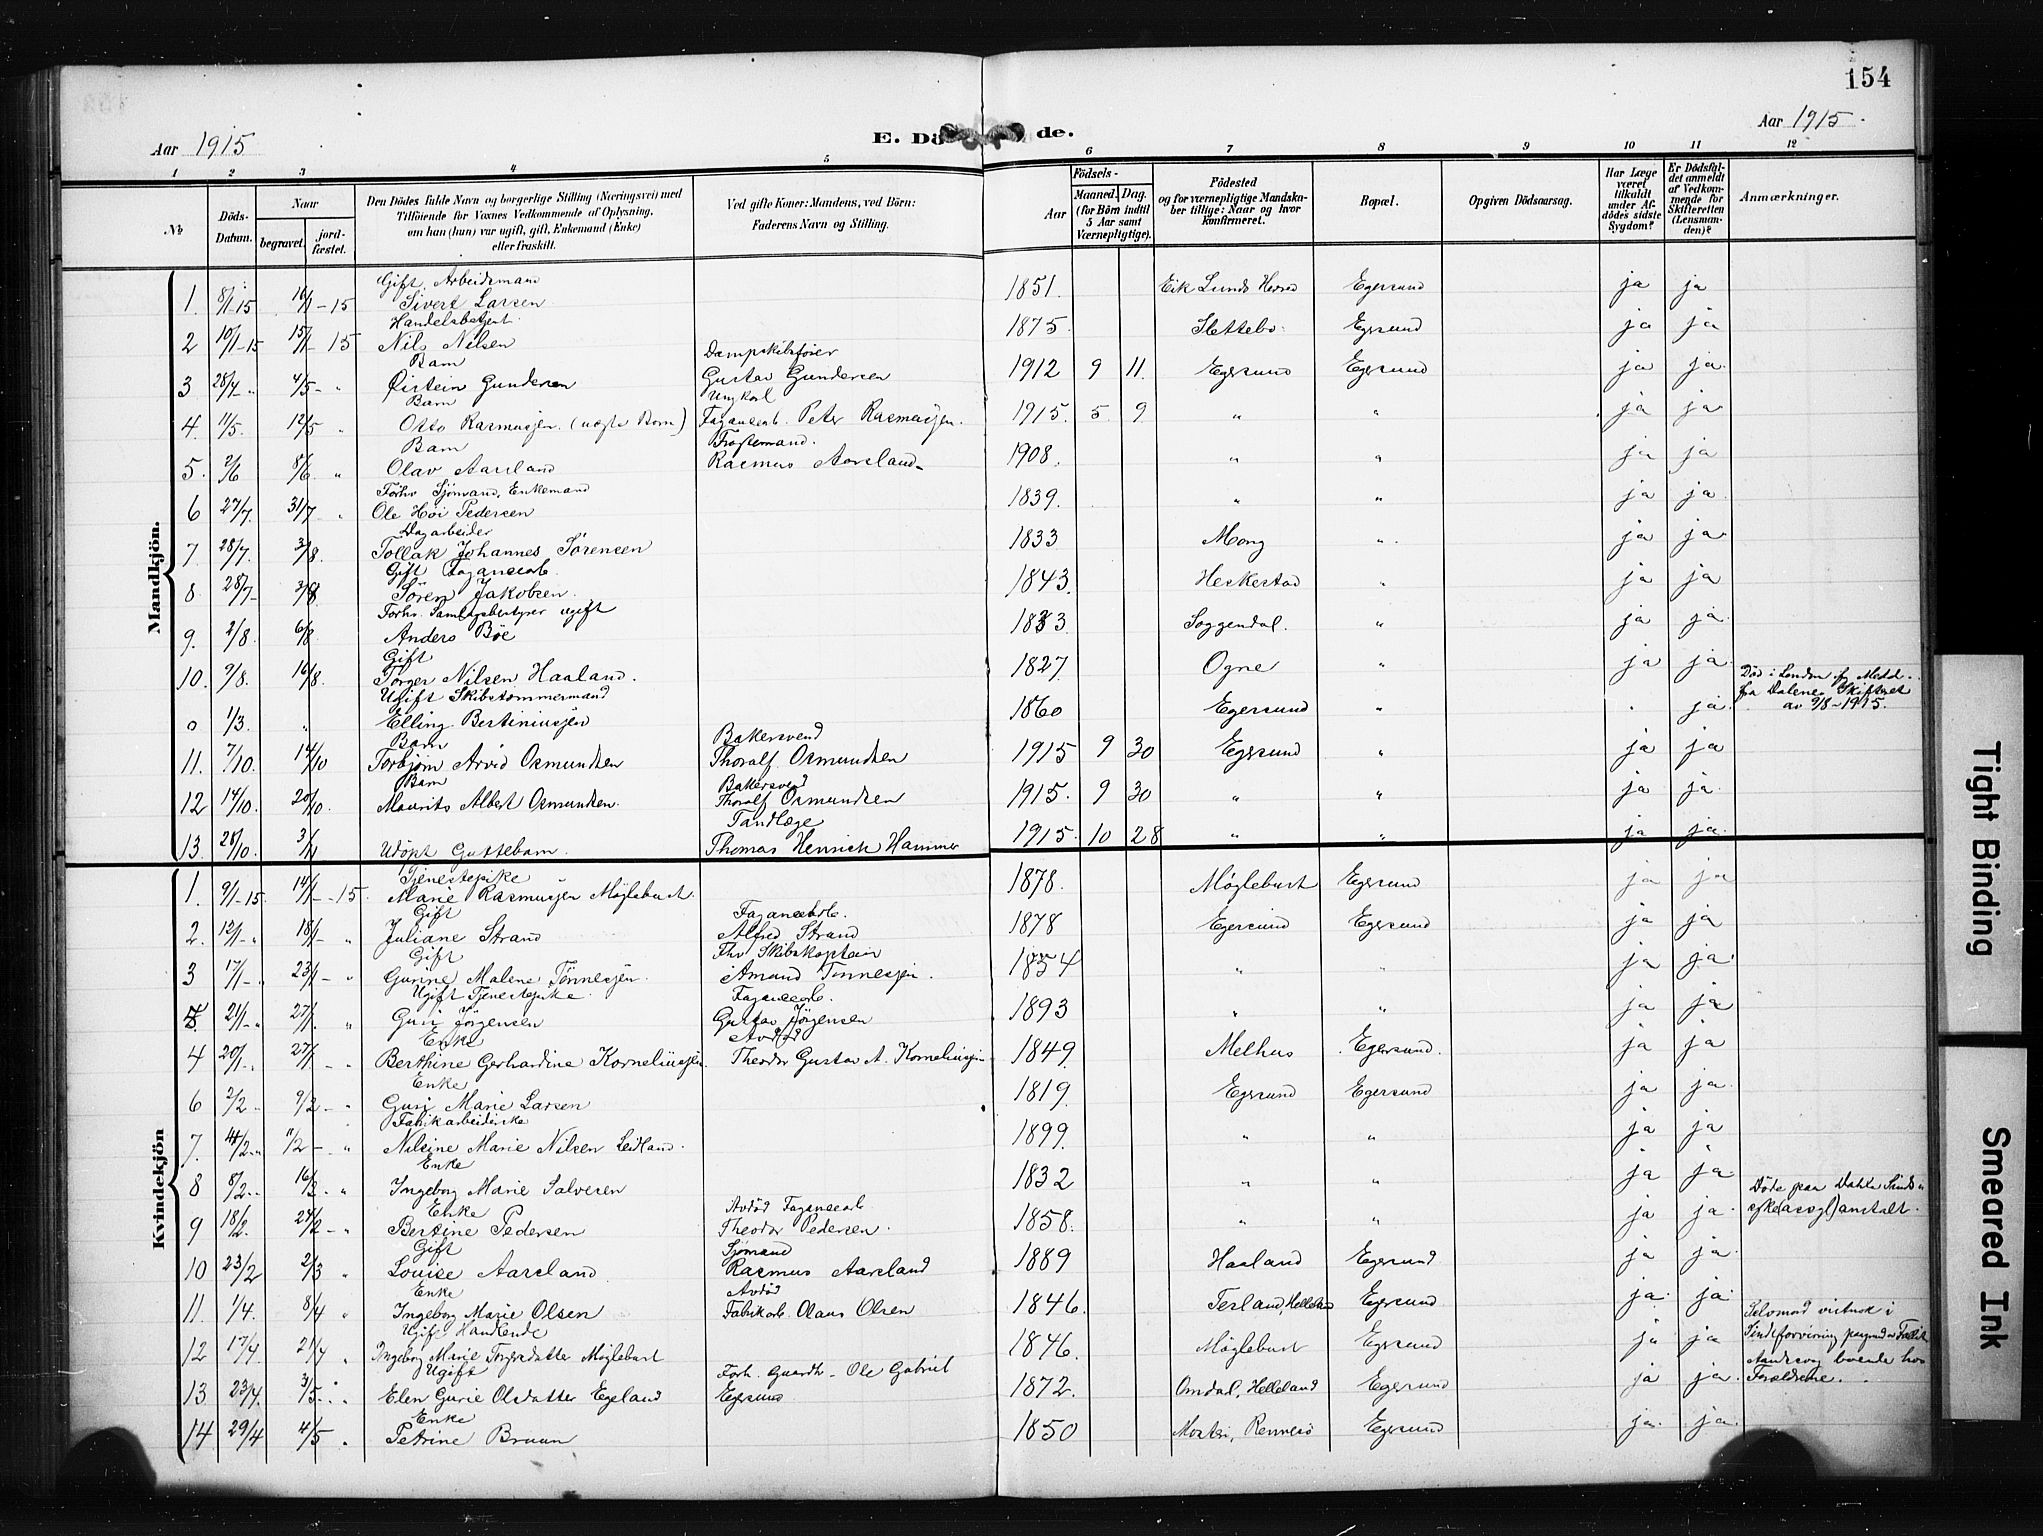 154
Aar 1915
E. Dö de.
Aar 1915.
1 2 3 4 5 6 7 8 9 10 11 12
No Döds-Datum. Naar begravet. jordfæstet. Den Dödes fulde Navn og borgerlige Stilling (Næringsvei) med Tilföiende for Voxnes Vedkommende af Oplysning, om han (hun) var ugift, gift, Enkemand (Enke) eller fraskilt. Ved gifte Koner: Mandens, ved Börn: Faderens Navn og Stilling. Aar Födsels- Maaned. Dag. (for Börn indtil 5 Aar samt Værnepligtige). Födested og for værnepligtige Mandskaber tillige: Naar og hvor konfirmeret. Bopæl. Opgiven Dödsaarsag. Har Læge været tilkaldt under Afdödes sidste Sygdom? Er Dödsfaldet anmeldt af Vedkommende for Skifteretten (Lensmanden)? Anmærkninger.
Mandkjön.
Gift Arbeidsmand
1. 8/1-15 16/1-15 Sivert Larsen 1851. Eik Lunds Herred Egersund ja ja
Handelsbetjent
2 10/1-15 15/1-15 Nils Nilsen 1875. Slettebø. Egersund ja ja
Barn Dampskibsfører
3 28/4-" 4/5-" Øistein Gundersen Gustav Gundersen 1912 9 11. Egersund Egersund ja ja.
Barn Ungkarl
4. 11/5. 12/5 " Otto Rasmussen. (uægte Barn) Fagancearb. Peter Rasmussen. 1915. 5. 9 " " ja ja.
Barn
5. 2/6 8/6. " Olav Aarsland Rasmus Aarsland. 1908. " " ja ja
Forhv Sjömand, Enkemand
6 27/7. 31/7 " Ole Höi Pedersen 1839. " " ja ja.
Dagarbeider
7. 28/7. 3/8. Tollak Johannes Sørensen 1833 Mong " ja ja.
Gift Fagancearb.
8. 28/7- 3/8 Sören Jakobsen. 1843. Heskestad " ja ja.
Forhv. Samlagsbestyrer ugift
9. 2/8. 6/8 Anders Böe 1833 Soggendal. " ja ja.
Gift
10. 9/8. 16/8. Torger Nilsen Haaland. 1827. Ogne " ja ja.
Död i London
fra Dalene Skifteret
av 9/8-1915.
Ugift Skibstømmermand
0 1/3. " Elling Bertiniussen 1860 Egersund " ja.
Barn Bakersvend
11. 7/10. 14/10 Torbjørn Arvid Osmundsen Thoralf Osmundsen 1915 9 30 Egersund " ja ja
Barn Bakersvend
12 14/10. 20/10. Maurits Albert Osmundsen. Thoralf Osmundsen 1915. 9 30 " " ja ja.
Tandlæge
13. 28/10. 3/11 Udöpt Guttebarn. Thomas Henrich Hammer 1915. 10 28 " " ja ja.
Kvindekjön
Tjenestepike
1. 9/1-15. 14/1-15. Marie Rasmussen Møglebust. 1878. Møglebust Egersund ja ja
Gift Fagancearb.
2. 12/1-" 18/1-" Juliane Strand Alfred Strand 1878 Egersund Egersund ja ja
Gift Fhv Skibskaptein
3 17/1-" 23/1-" Gunine Malene Tönnessen. Amund Tönnessen. 1854 " " ja ja.
Ugift Tjenestepike. Fagancearb.
21/1-" 27/1. " Guri Jörgensen Gustav Jörgensen 1893 " " ja ja
Enke Avdöd
4 20/1-. 27/1. -" Berthine Gerhardine Korneliussen. Theodor Gustav A. Korneliussen 1849. Melhus Egersund. ja ja
Enke
6 2/2-. 9/2-" Guri Marie Larsen 1819. Egersund Egersund ja ja.
Fabrikarbeiderske
7. 4/2-" 11/2-" Nilsine Marie Nilsen Leidland. 1899. " " ja ja
Enke
8 8/2-. 16/2. " Ingeborg Marie Salvesen 1832 " " ja ja.
Döde paa Dahle Sinds-
syke(asogl)anstalt.
Enke Avdöd Fagancearb
9 18/2. 24/2-" Bertine Pedersen Theodor Pedersen. 1858. " " ja ja.
Gift Sjömand
10 23/2 2/3 " Louise Aarsland Rasmus Aarsland 1889 Haaland Egersund ja ja.
Enke Avdöd
11. 1/4. 8/4 " Ingeborg Marie Olsen Fabrikarb. Olaus Olsen 1846. Terland, Helleland Egersund ja. ja.
Ugift Handlende
12 17/4. 21/4 " Ingeborg Marie Torgersdatter Møglebust 1846. Møglebust Egersund ja ja
Selvmord vistnok i
Sindsforvirring
boende hos
Forældrene.
Ugift Forh. Gaardb. Ole Gabriel
13 23/4. 3/5. " Elen Gurie Olsdatter Egeland Egersund 1872. Omdal, Helleland Egersund ja ja.
Enke
14 29/4 4/5 " Petrine Bruun 1850 Mosterö, Rennesö Egersund ja. ja.
Tight Binding
Smeared Ink